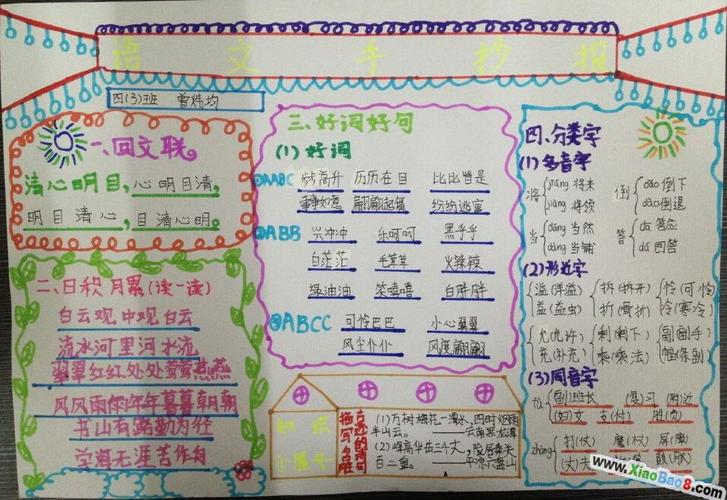 语文手抄报
四(3)班
一、回文联
清心明目,心明目清,
明目清心,目清心明。
二、日积月累(读一读)
白云观中观白云
流水河里河水流
翠翠红红处处莺莺燕燕
风风雨雨年年暮暮朝朝
书山有路勤为径
学海无涯苦作舟
三、好词好句
(1)好词
①AABC 步步高升 历历在目 比比皆是
事事如意 翩翩起舞 纷纷逃窜
②ABB 兴冲冲 乐呵呵 黑乎乎
白茫茫 毛茸茸 火辣辣
绿油油 笑嘻嘻 白胖胖
③ABCC 可怜巴巴 小心翼翼
风尘仆仆 风度翩翩
知识
小屋
描写
的诗句
(1)万树梅花一潭水,四时烟雨
半山云。——云南黑龙潭
(2)峰高华岳三千丈,险居秦关
百二重。——平凉六盘山
四、分类字
(1)多音字
将 jiāng 将来
jiàng 将领
倒 dǎo 倒下
dào 倒退
当 dāng 当然
dàng 当铺
答 dā 答应
dá 回答
(2)形近字
溢(洋溢) 拆(拆开) 怜(可怜)
益(益虫) 折(骨折) 冷(寒冷)
允(允许) 剩(剩下) 副(副手)
充(补充) 乘(乘法) 幅(条幅)
(3)同音字
fù (副)班长 (复)习 (附)近
(妇)女 支(付)
zhàng 打(仗) 屏(障)
(丈)夫
www.XiaoBao8.com